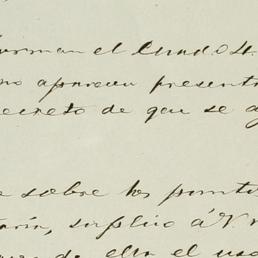 forman el
no aparecen present
ecreto de que se a
e sobre los punto
taria, suplico á V.
de ella el uso